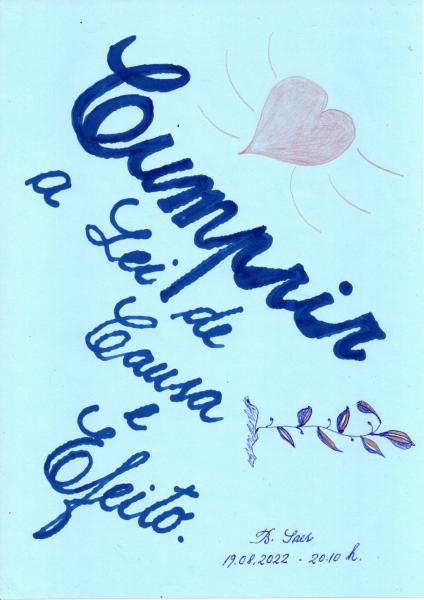 Cumprir
a Lei de
Causa e
Efeito.
D. Saes
19.08.2022 - 20.10 h.